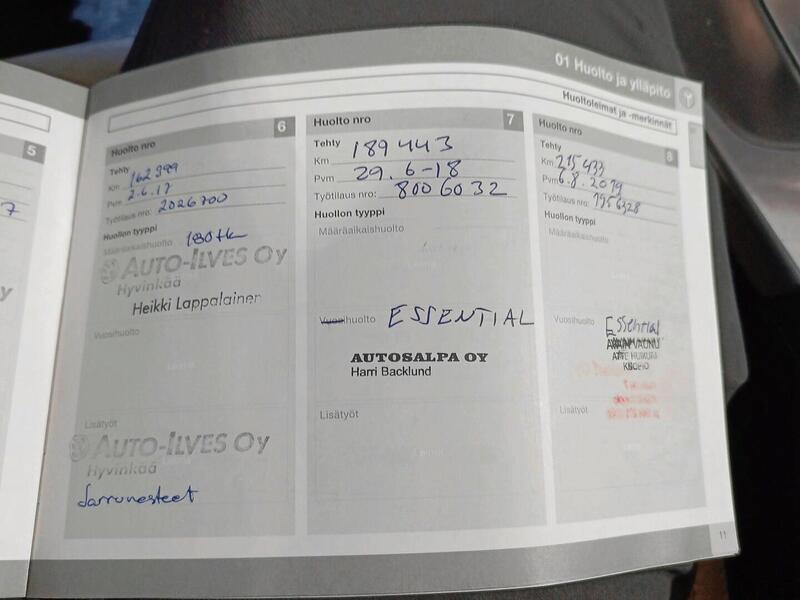 01 Huolto ja ylläpito
Huoltoleimat ja -merkinnät
5
7
y
Huolto nro 6
Tehty
Km 162399
Pvm 2.6.17
Työtilaus nro: 2026700
Huollon tyyppi
Määräaikaishuolto 180tk
AUTO-ILVES Oy
Hyvinkää
Heikki Lappalainen
Vuosihuolto
Lisätyöt
AUTO-ILVES Oy
Hyvinkää
Jarrunesteet
Huolto nro 7
Tehty
Km 189443
Pvm 29.6-18
Työtilaus nro: 8006032
Huollon tyyppi
Määräaikaishuolto
Vuosihuolto ESSENTIAL
AUTOSALPA OY
Harri Backlund
Lisätyöt
Huolto nro 8
Tehty
Km 215433
Pvm 6.8.2019
Työtilaus nro: 1956328
Huollon tyyppi
Määräaikaishuolto
Vuosihuolto Essential
Lisätyöt
11